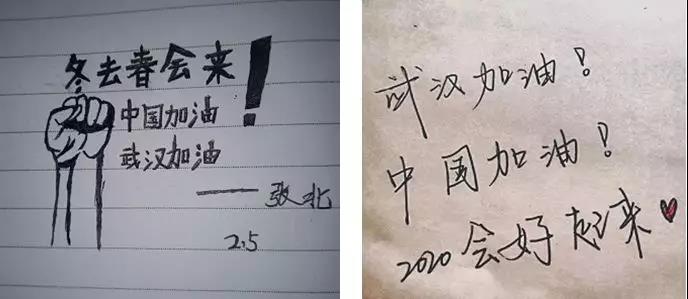 冬去春会来!
中国加油
武汉加油
——张北
2.5
武汉加油!
中国加油!
2020会好起来